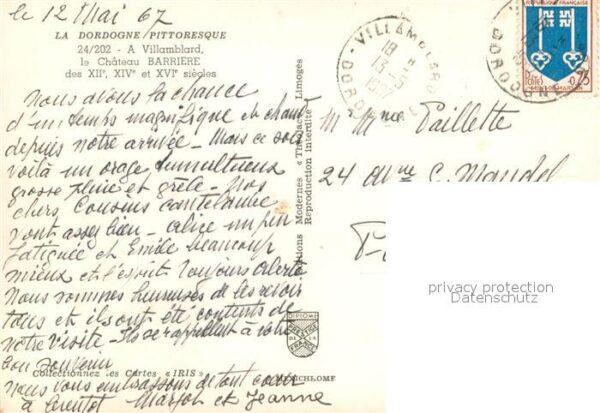 le 12 Mai 67
LA DORDOGNE PITTORESQUE
24/202 - A Villamblard,
le Château BARRIÈRE
des XIIe, XIVe et XVIe siècles
Nous avons la chance
d'un temps magnifique et chaud
depuis notre arrivée - Mais ce soir
voilà un orage tumultueux
grosse pluie et grêle - Nos
chers Cousins Cantelaube
vont assez bien - Alice un peu
fatiguée et Emile beaucoup
mieux et l'esprit toujours alerte
Nous sommes heureuses de les revoir
tous et ils ont été contents de
notre visite - Ils se rappellent à votre
bon souvenir
Nous vous embrassons de tout cœur
à bientôt Marjot et Jeanne
Collectionnez les Cartes "IRIS"
MEXICHROME
Editions Modernes « Théojac » Limoges
Reproduction interdite
DIPLOME
PRESTIGE
DE LA
FRANCE
VILLAMBLARD
18 H
13-5
DORDOGNE
REPUBLIQUE FRANÇAISE
0,25
MONT-DE-MARSAN
DORDOGNE
Mr Mme Paillette
24 Avne G. Mandel
privacy protection
Datenschutz